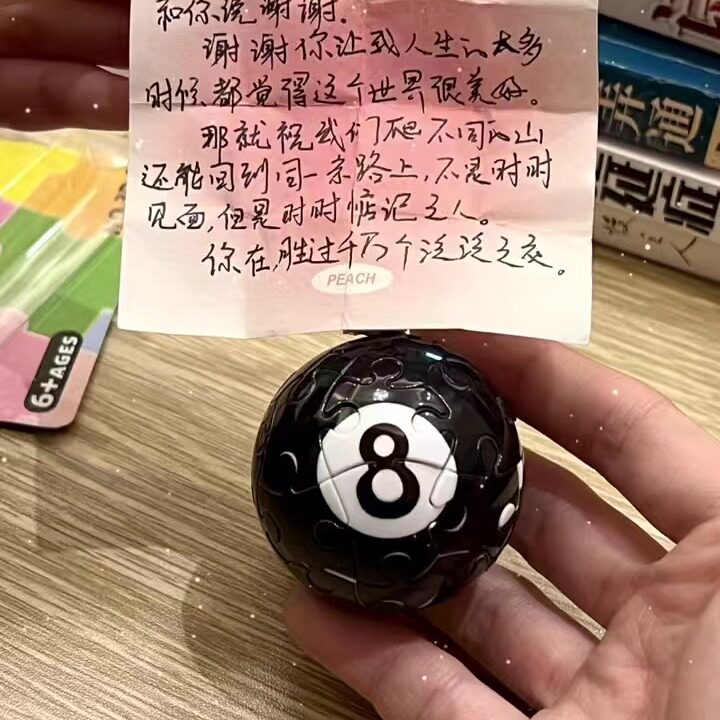 和你说谢谢.
谢谢你让我人生的太多
时候都觉得这个世界很美好。
那就祝我们爬不同的山
还能回到同一条路上,不是时时
见面,但是时时惦记之人。
你在,胜过千万个泛泛之交。
PEACH
6+AGES
8